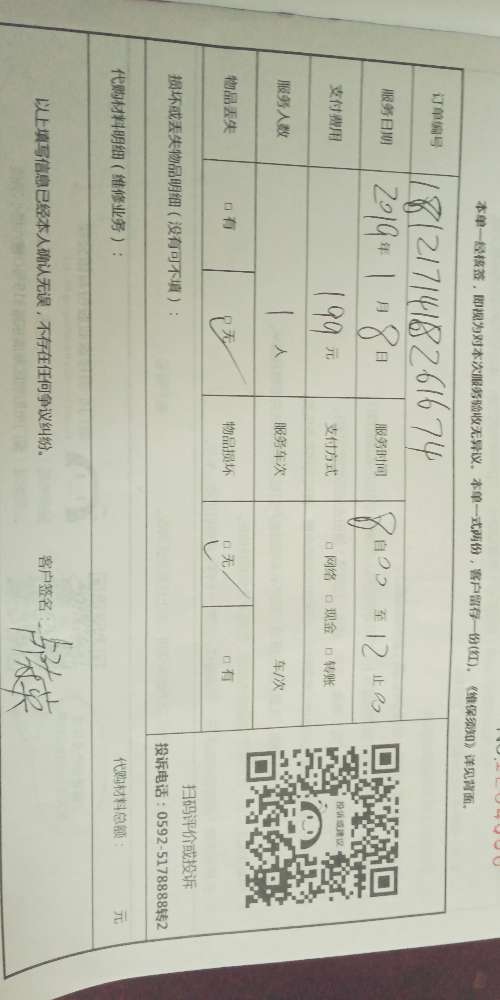 本单一经核签，即视为对本次服务验收无异议。本单一式两份，客户留存一份(红)。《维保须知》详见背面。
订单编号 181217141826167 4
服务日期 2019年 1 月 8 日 服务时间 8 自 00 至 12 止 00
支付费用 199 元 支付方式 □ 网络 □ 现金 □ 转账
服务人数 1 人 服务车次 车/次
物品丢失 □ 有 □ 无 物品损坏 □ 无 □ 有
投诉或建议
扫码评价或投诉
投诉电话：0592-5178888转2
损坏或丢失物品明细（没有可不填）：
代购材料明细（维修业务）：
代购材料总额： 元
以上填写信息已经本人确认无误，不存在任何争议纠纷。
客户签名：